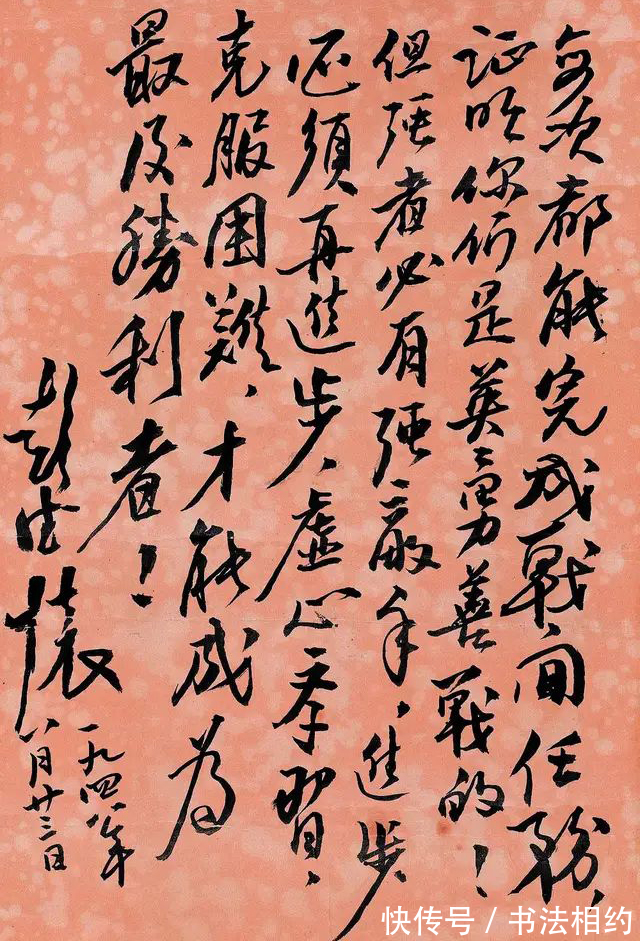 每次都能完成戰鬥任務，
证明你们是英勇善戰的！
但强者必有强敵手，進步
还須再進步，虛心学習，
克服困難，才能成为
最后勝利者！
彭德懷
一九四八年
八月廿三日
快传号 / 书法相约